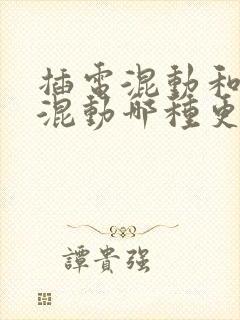 插電混動和
混動哪種更
譚貴強